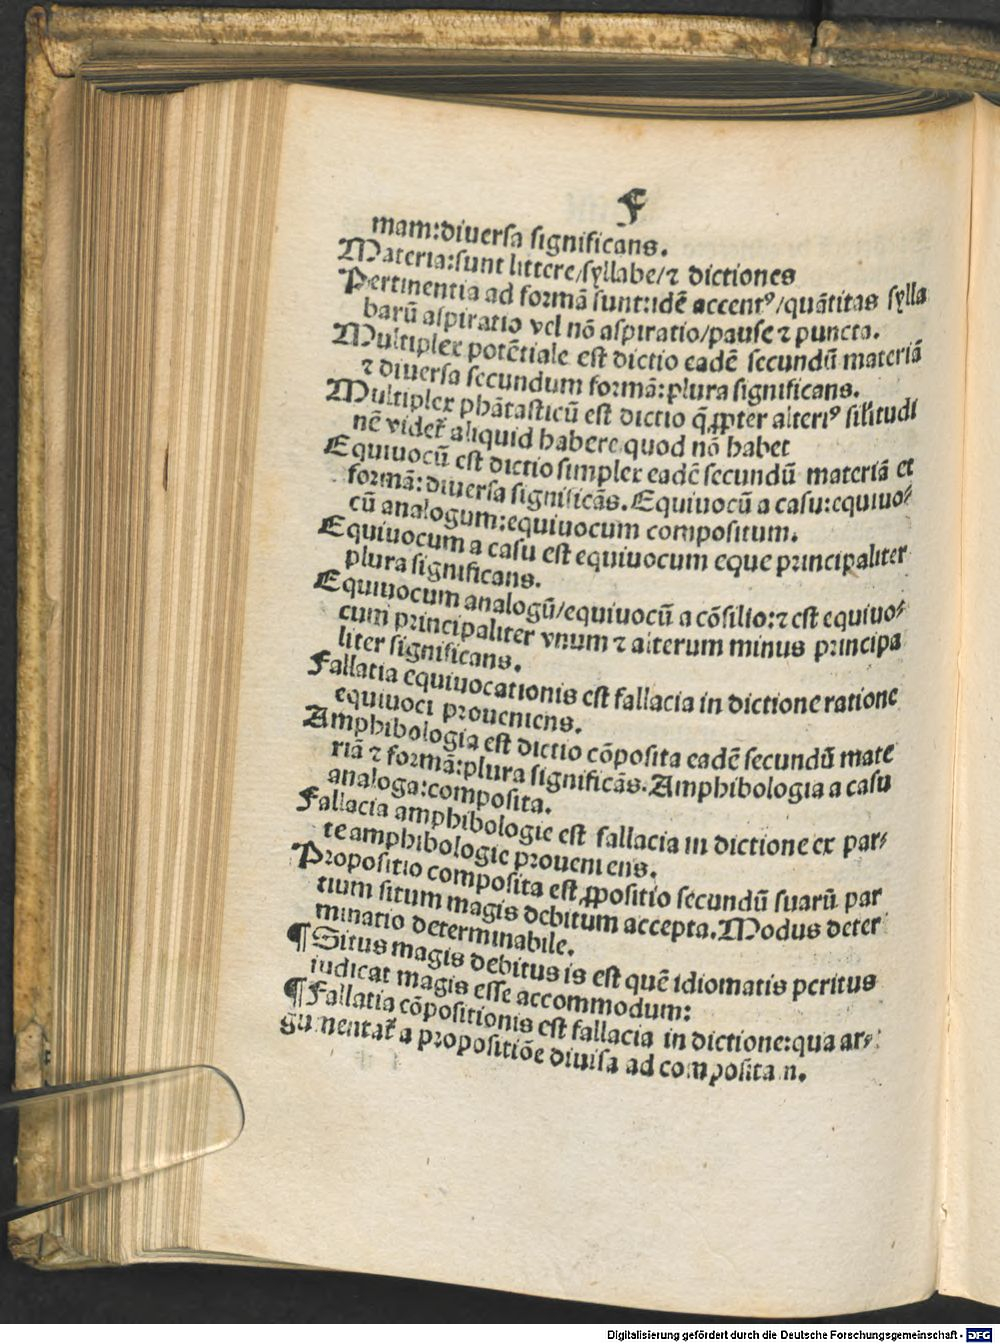 F
mam:diuersa significans.
Materia:sunt littere/syllabe/⁊ dictiones
Pertinentia ad formā sunt:idē accentꝰ/quātitas sylla
barū aspiratio vel nō aspiratio/pause ⁊ puncta.
Multiplex potētiale est dictio eadē secundū materiā
⁊ diuersa secundum formā:plura significans.
Multiplex phātasticū est dictio q̄ ꝓpter alteriꝰ sil̄itudi
nē videt̄ aliquid habere quod nō habet
Equiuocū est dictio simplex eadē secundū materiā et
formā:diuersa significās.Equiuocū a casu:equiuo⸗
cū analogum:equiuocum compositum.
Equiuocum a casu est equiuocum eque principaliter
plura significans.
Equiuocum analogū/equiuocū a cōsilio:⁊ est equiuo⸗
cum principaliter vnum ⁊ alterum minus principa
liter significans.
Fallatia equiuocationis est fallacia in dictione ratione
equiuoci proueniens.
Amphibologia est dictio cōposita eadē secundū mate
riā ⁊ formā:plura significās.Amphibologia a casu
analoga:composita.
Fallacia amphibologie est fallacia in dictione ex par⸗
te amphibologie proueniens.
Propositio composita est ꝓpositio secundū suarū par
tium situm magis debitum accepta.Modus deter
minatio determinabile.
¶Situs magis debitus is est quē idiomatis peritus
iudicat magis esse accommodum:
¶Fallatia cōpositionis est fallacia in dictione:qua ar⸗
gumentat̄ a propositiōe diuisa ad compositam.
Digitalisierung gefördert durch die Deutsche Forschungsgemeinschaft - DFG